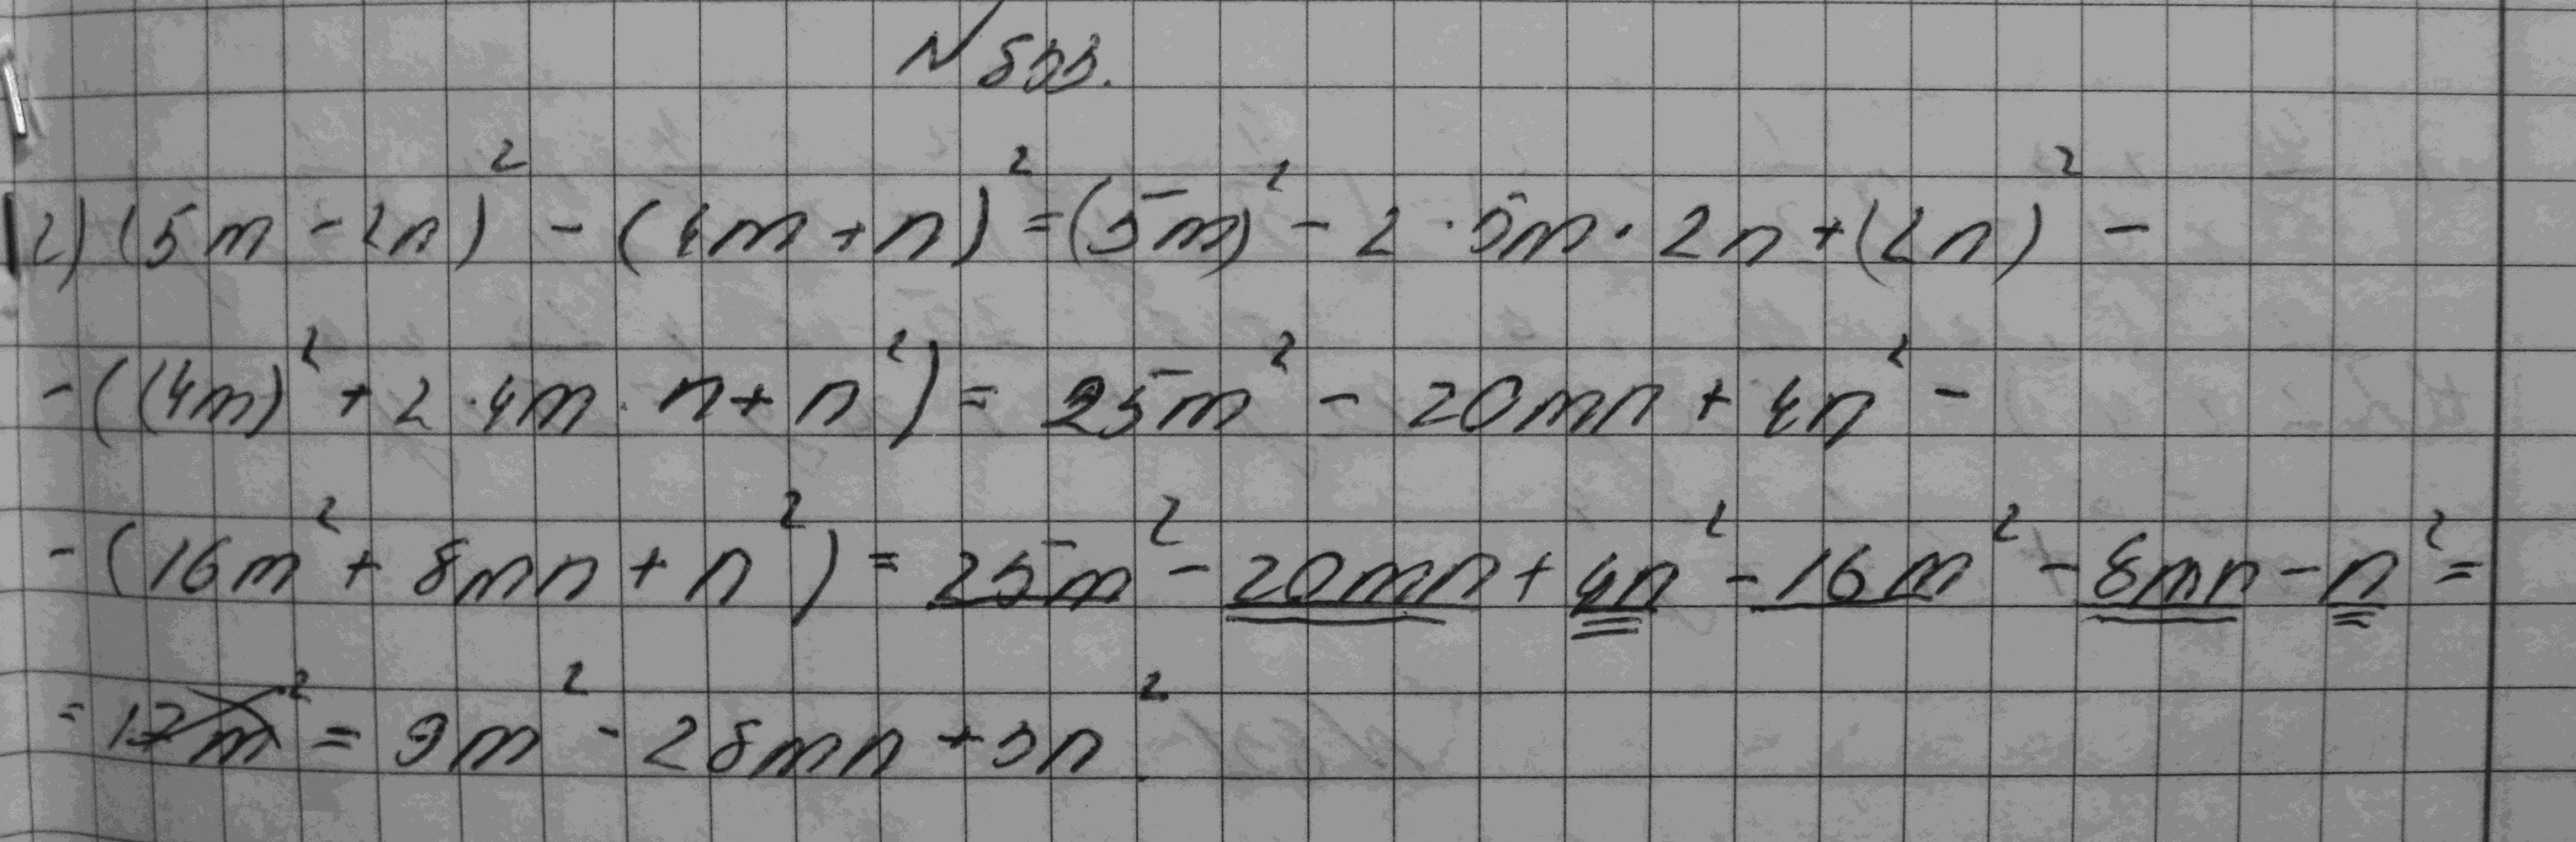 № 833.
2) (5m - 2n)² - (4m + n)² = (5m)² - 2 · 5m · 2n + (2n)² -
- ((4m)² + 2 · 4m · n + n²) = 25m² - 20mn + 4n² -
- (16m² + 8mn + n²) = 25m² - 20mn + 4n² - 16m² - 8mn - n² =
= = 9m² - 28mn + 3n².